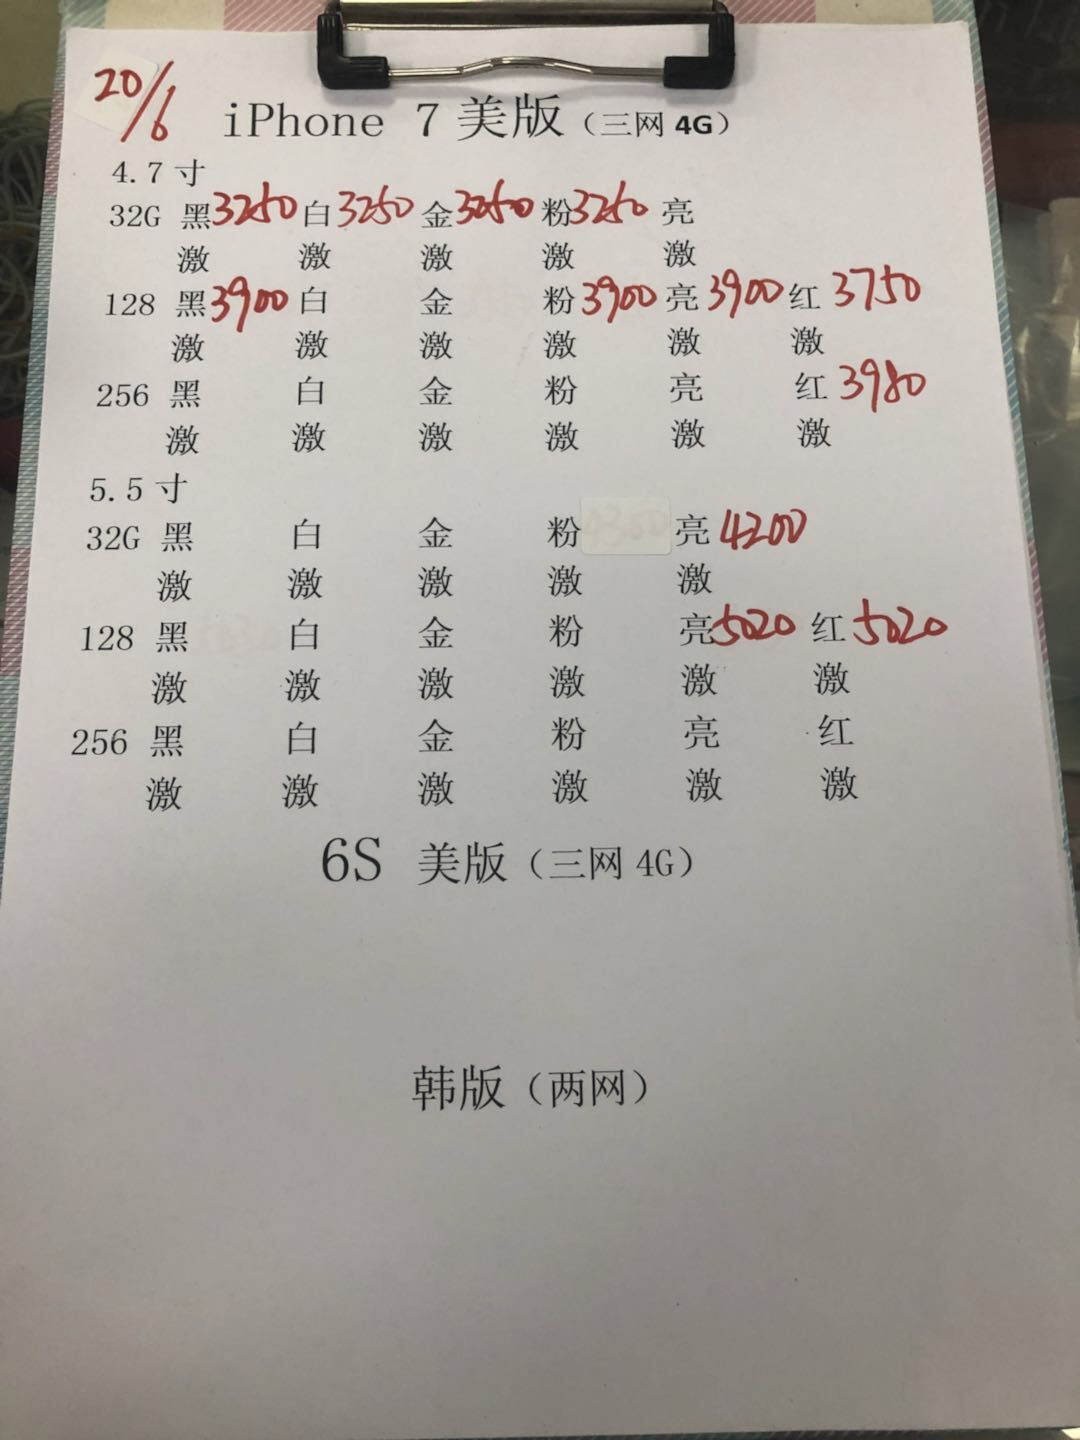 20/6
iPhone 7 美版（三网 4G）
4.7 寸
32G 黑 3250 白 3250 金 3250 粉 3250 亮
激 激 激 激 激
128 黑 3900 白 金 粉 3900 亮 3900 红 3750
激 激 激 激 激 激
256 黑 白 金 粉 亮 红 3980
激 激 激 激 激 激
5.5 寸
32G 黑 白 金 粉 亮 4200
激 激 激 激 激
128 黑 白 金 粉 亮 5020 红 5020
激 激 激 激 激 激
256 黑 白 金 粉 亮 红
激 激 激 激 激 激
6S 美版（三网 4G）
韩版（两网）